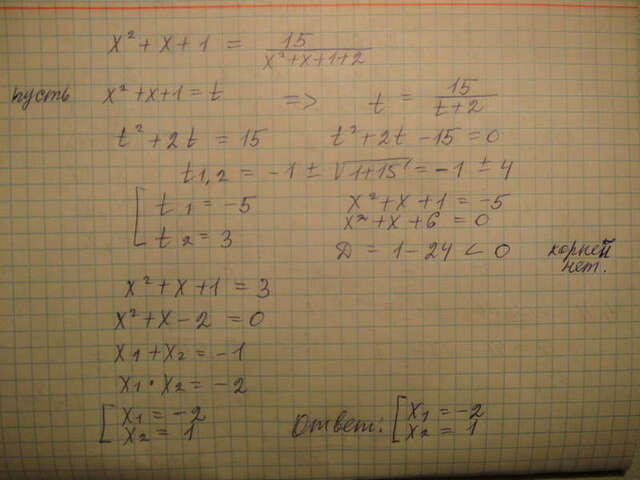 x² + x + 1 = 15 / (x² + x + 1 + 2)
пусть x² + x + 1 = t => t = 15 / (t + 2)
t² + 2t = 15 t² + 2t - 15 = 0
t1,2 = -1 ± √(1 + 15) = -1 ± 4
[ t1 = -5 x² + x + 1 = -5
x² + x + 6 = 0
t2 = 3 Д = 1 - 24 < 0 корней
нет.
x² + x + 1 = 3
x² + x - 2 = 0
x1 + x2 = -1
x1 · x2 = -2
[ x1 = -2 Ответ: [ x1 = -2
x2 = 1 x2 = 1